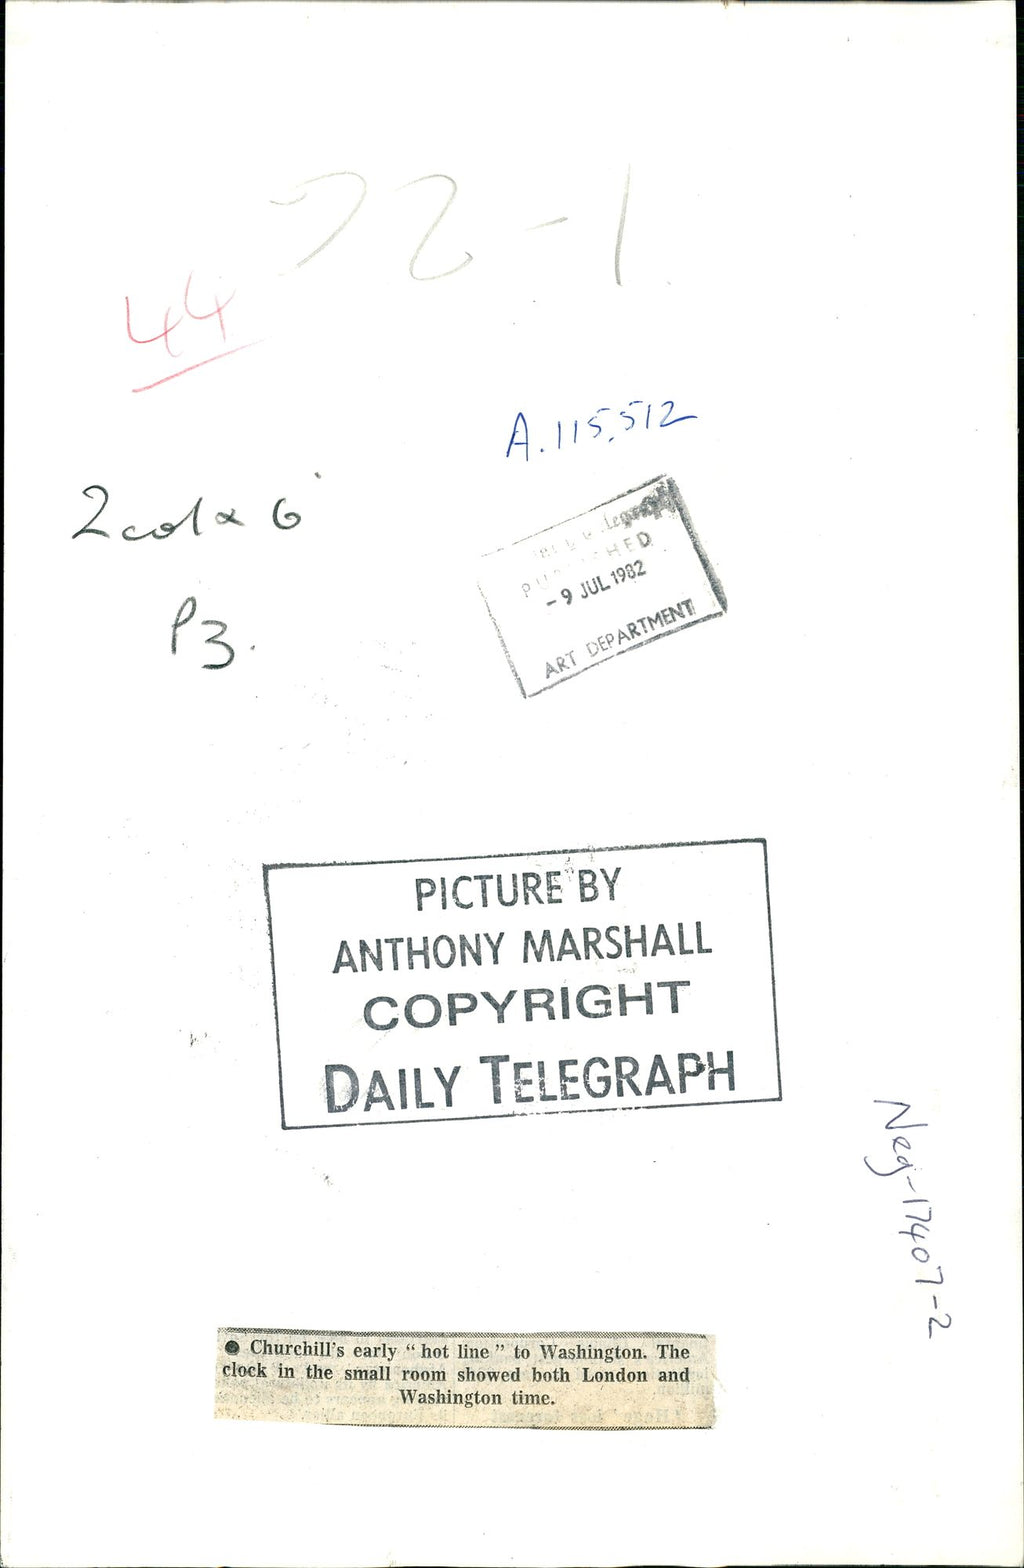 72-1
44
A.115,512
2 col x 6
P3.
PUBLISHED
- 9 JUL 1982
ART DEPARTMENT
PICTURE BY
ANTHONY MARSHALL
COPYRIGHT
DAILY TELEGRAPH
Neg-17407-2
● Churchill's early “ hot line ” to Washington. The
clock in the small room showed both London and
Washington time.